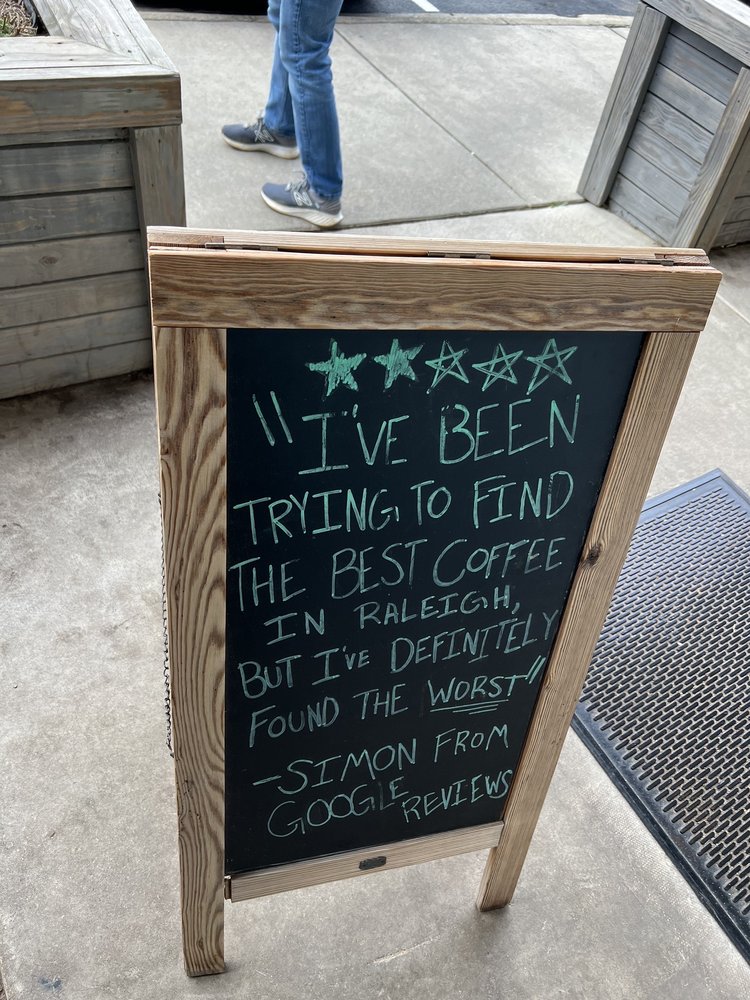 "I'VE BEEN
TRYING TO FIND
THE BEST COFFEE
IN RALEIGH,
BUT I'VE DEFINITELY
FOUND THE WORST"
-SIMON FROM
GOOGLE REVIEWS